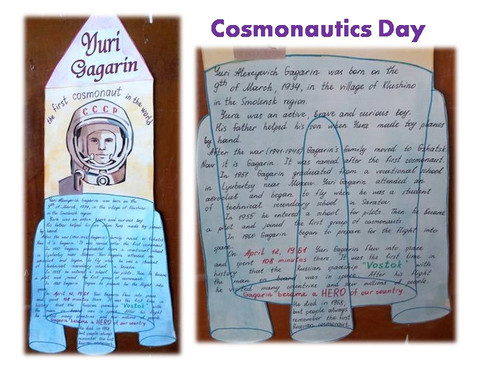 Cosmonautics Day
Yuri
Gagarin
the first cosmonaut in the world
СССР
Yuri Alexeyevich Gagarin was born on the
9th of March, 1934, in the village of Klushino
in the Smolensk region.
Yura was an active, brave and curious boy.
His father helped his son when Yura made toy planes
by hand.
After the war (1941-1945) Gagarin's family moved to Gzhatsk
Now it is Gagarin. It was named after the first cosmonaut.
In 1951 Gagarin graduated from a vocational school
in Lyubertsy near Moscow. Yuri Gagarin attended an
aeroclub and began to fly when he was a student
of technical secondary school in Saratov.
In 1955 he entered a school for pilots. Then he became
a pilot and joined the first group of cosmonauts.
In 1960 Gagarin began to prepare for the flight into
space.
On April 12, 1961 Yuri Gagarin flew into space
and spent 108 minutes there. It was the first time in
history that the russian spaceship "Vostok" with
the man on board was in space. After his flight
he visited many countries and saw millions of people
Gagarin became a HERO of our country
He died in 1968,
but people always
remember the first
Russian cosmonaut.